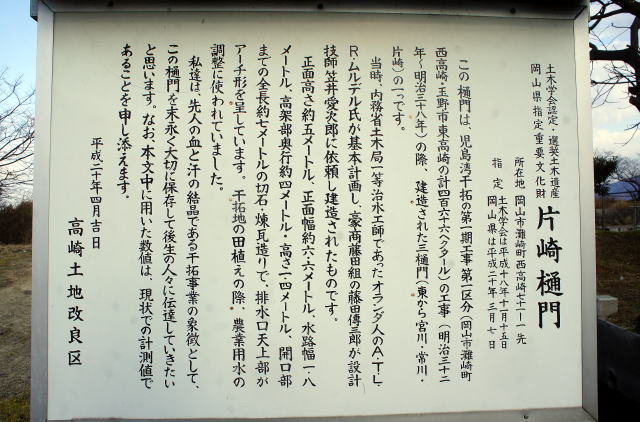 土木学会認定・選奨土木遺産
岡山県指定重要文化財
片崎樋門
所在地 岡山市灘崎町西高崎七十一先
指定 土木学会は平成十八年十一月十五日
岡山県は平成二十年三月七日
この樋門は、児島湾干拓の第一期工事第一区分(岡山市灘崎町
西高崎・玉野市東高崎の計四百六十六ヘクタール)の工事(明治三十二
年~明治三十八年)の際、建造された三樋門(東から宮川・常川・
片崎)の一つです。
当時、内務省土木局一等治水工師であったオランダ人のA・T・L・
R・ムルデル氏が基本計画し、豪商藤田組の藤田傳三郎が設計
技師笠井愛次郎に依頼し建造されたものです。
正面高さ約五メートル、正面幅約六・六メートル、水路幅一・八
メートル、高架部奥行約四メートル・高さ二・四メートル、開口部
までの全長約七メートルの切石・煉瓦造りで、排水口天上部が
アーチ形を呈しています。干拓地の田植えの際、農業用水の
調整に使われていました。
私達は、先人の血と汗の結晶である干拓事業の象徴として、
この樋門を末永く大切に保存して後生の人々に伝達していきたい
と思います。なお、本文中に用いた数値は、現状での計測値で
あることを申し添えます。
平成二十年四月吉日
高崎土地改良区